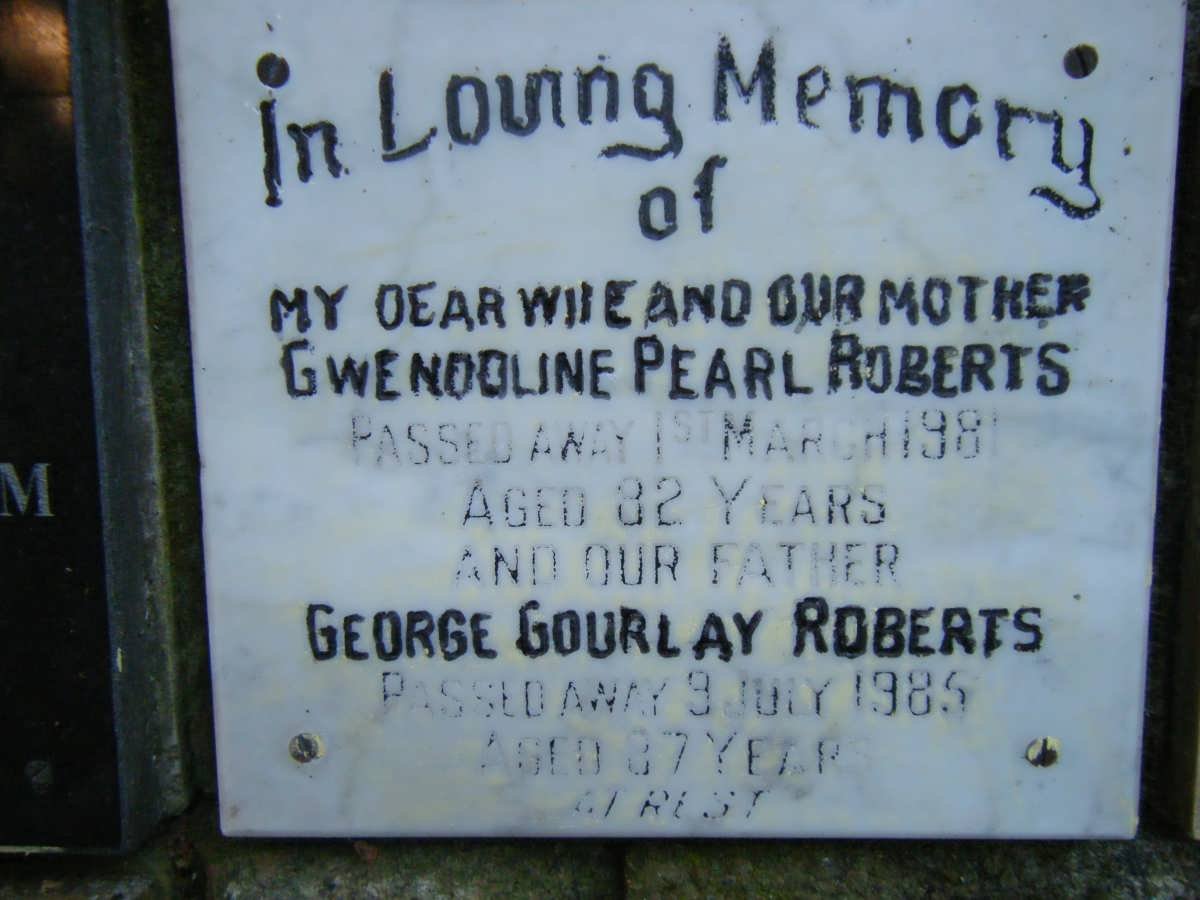 In Loving Memory
of
MY DEAR WIFE AND OUR MOTHER
GWENDOLINE PEARL ROBERTS
PASSED AWAY 1ST MARCH 1981
AGED 82 YEARS
AND OUR FATHER
GEORGE GOURLAY ROBERTS
PASSED AWAY 9 JULY 1985
AGED 87 YEARS
AT REST
M